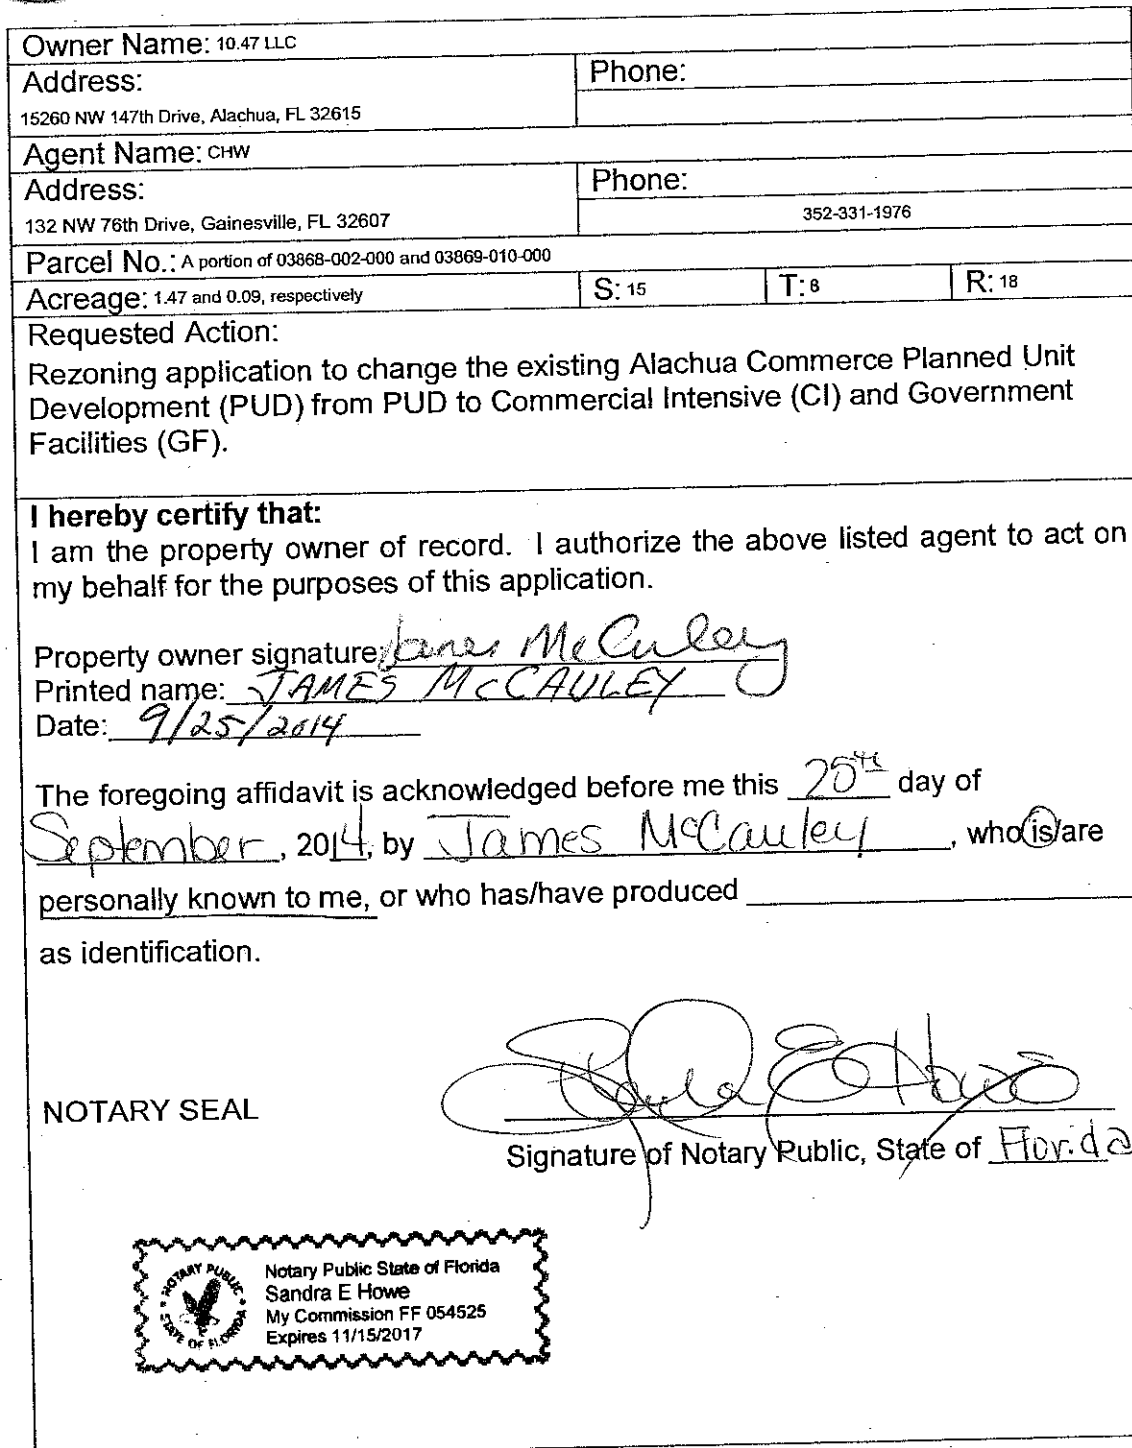 Owner Name: 10.47 LLC
Address:
Phone:
15260 NW 147th Drive, Alachua, FL 32615
Agent Name: CHW
Address:
Phone:
132 NW 76th Drive, Gainesville, FL 32607
352-331-1976
Parcel No.: A portion of 03868-002-000 and 03869-010-000
Acreage: 1.47 and 0.09, respectively S: 15 T: 8 R: 18
Requested Action:
Rezoning application to change the existing Alachua Commerce Planned Unit
Development (PUD) from PUD to Commercial Intensive (CI) and Government
Facilities (GF).
I hereby certify that:
I am the property owner of record. I authorize the above listed agent to act on
my behalf for the purposes of this application.
Property owner signature: James McCauley
Printed name: JAMES McCAULEY
Date: 9/25/2014
The foregoing affidavit is acknowledged before me this 25th day of
September, 2014, by James McCauley, who is/are
personally known to me, or who has/have produced
as identification.
NOTARY SEAL
Signature of Notary Public, State of Florida
NOTARY PUBLIC
STATE OF FLORIDA
Notary Public State of Florida
Sandra E Howe
My Commission FF 054525
Expires 11/15/2017